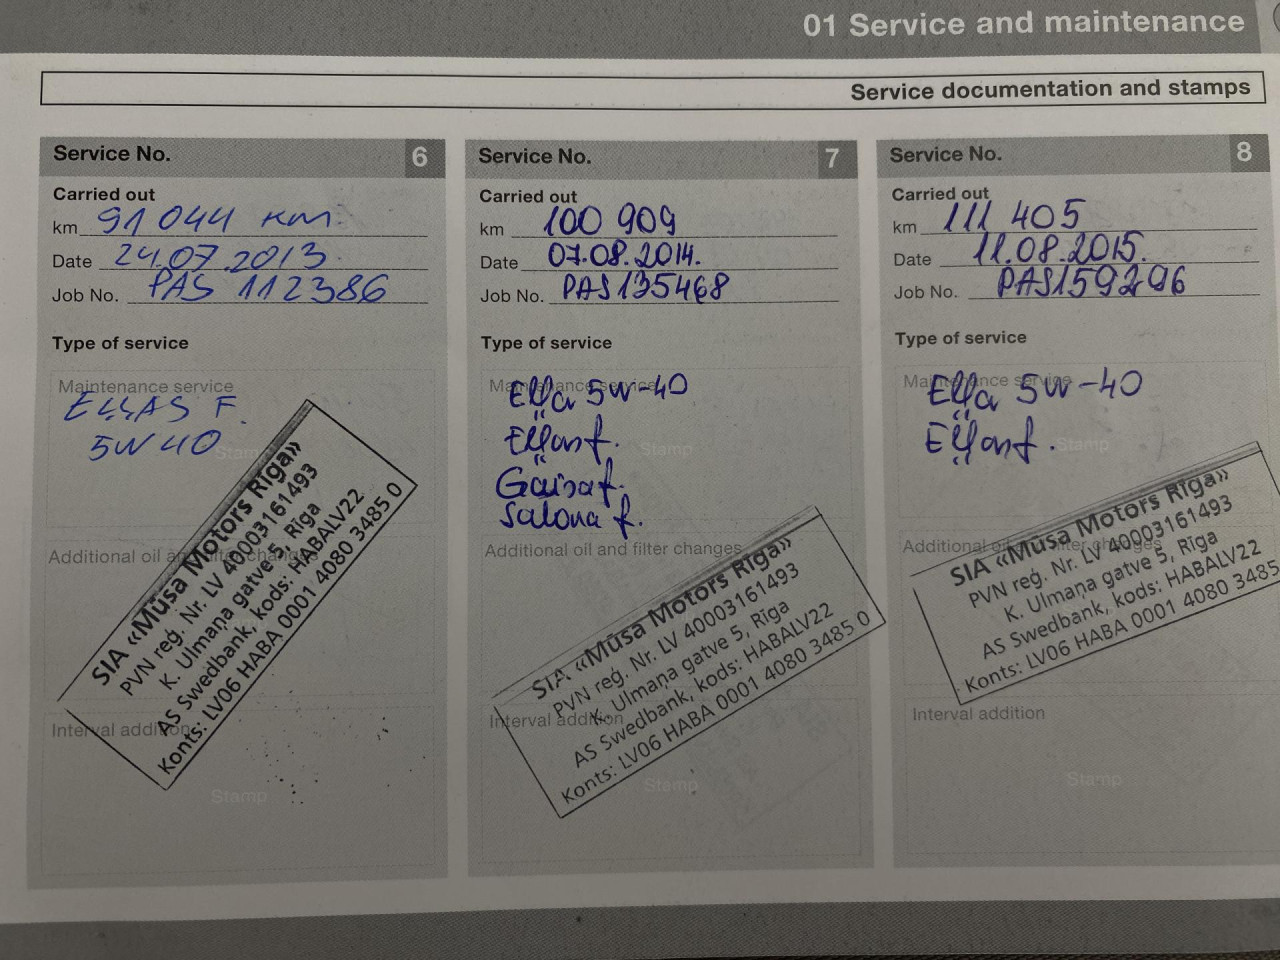 01 Service and maintenance
Service documentation and stamps
Service No. 6
Carried out
km 91 044 км
Date 24.07.2013.
Job No. PAS 112386
Type of service
Maintenance service
EĻĻAS F.
5W 40
Stamp
Additional oil and filter changes
SIA «Mūsa Motors Rīga»
PVN reģ. Nr. LV 40003161493
K. Ulmaņa gatve 5, Rīga
AS Swedbank, kods: HABALV22
Konts: LV06 HABA 0001 4080 3485 0
Interval addition
Stamp
Service No. 7
Carried out
km 100 909
Date 07.08.2014.
Job No. PAS135468
Type of service
Maintenance service
Eļļa 5w-40
Eļļas f.
Stamp
Gaisa f.
Salona f.
Additional oil and filter changes
SIA «Mūsa Motors Rīga»
PVN reģ. Nr. LV 40003161493
K. Ulmaņa gatve 5, Rīga
AS Swedbank, kods: HABALV22
Konts: LV06 HABA 0001 4080 3485 0
Interval addition
Stamp
Service No. 8
Carried out
km 111 405
Date 11.08.2015.
Job No. PAS159296
Type of service
Maintenance service
Eļļa 5w-40
Eļļas f.
Stamp
Additional oil and filter changes
SIA «Mūsa Motors Rīga»
PVN reģ. Nr. LV 40003161493
K. Ulmaņa gatve 5, Rīga
AS Swedbank, kods: HABALV22
Konts: LV06 HABA 0001 4080 3485
Interval addition
Stamp